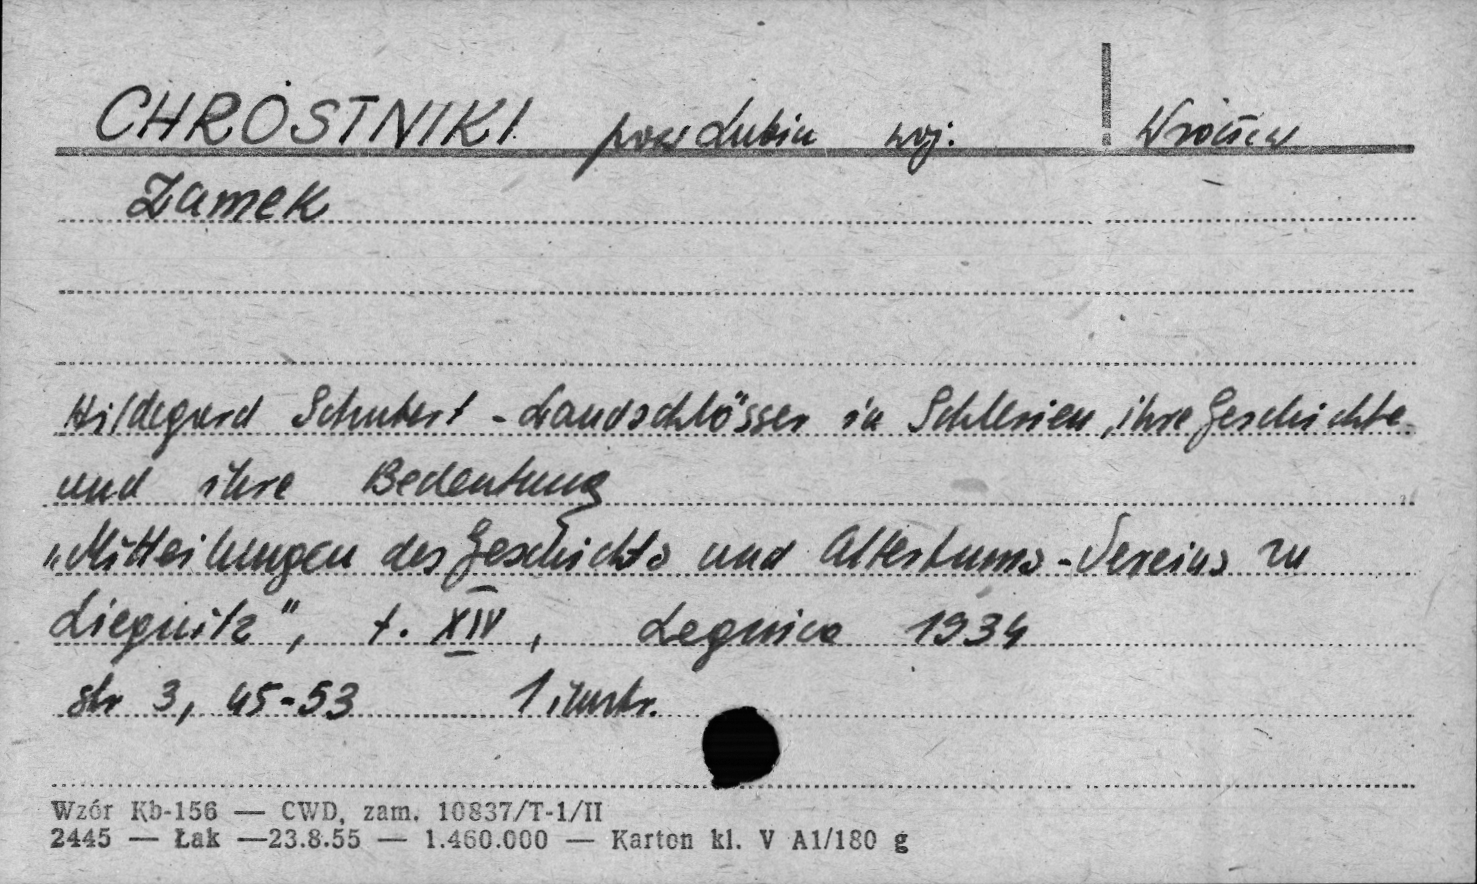 CHRÓSTNIKI pow Lubin woj. Wrocław
Zamek
Hildegard Schubert - Landschlösser in Schlesien, ihre Geschichte
und ihre Bedeutung
"Mitteilungen des Geschichts und Altertums - Vereins zu
Liegnitz", t. XIV, Legnica 1934
str 3, 45-53 1 ilustr.
Wzór Kb-156 — CWD, zam. 10837/T-1/II
2445 — Łak —23.8.55 — 1.460.000 — Karton kl. V A1/180 g